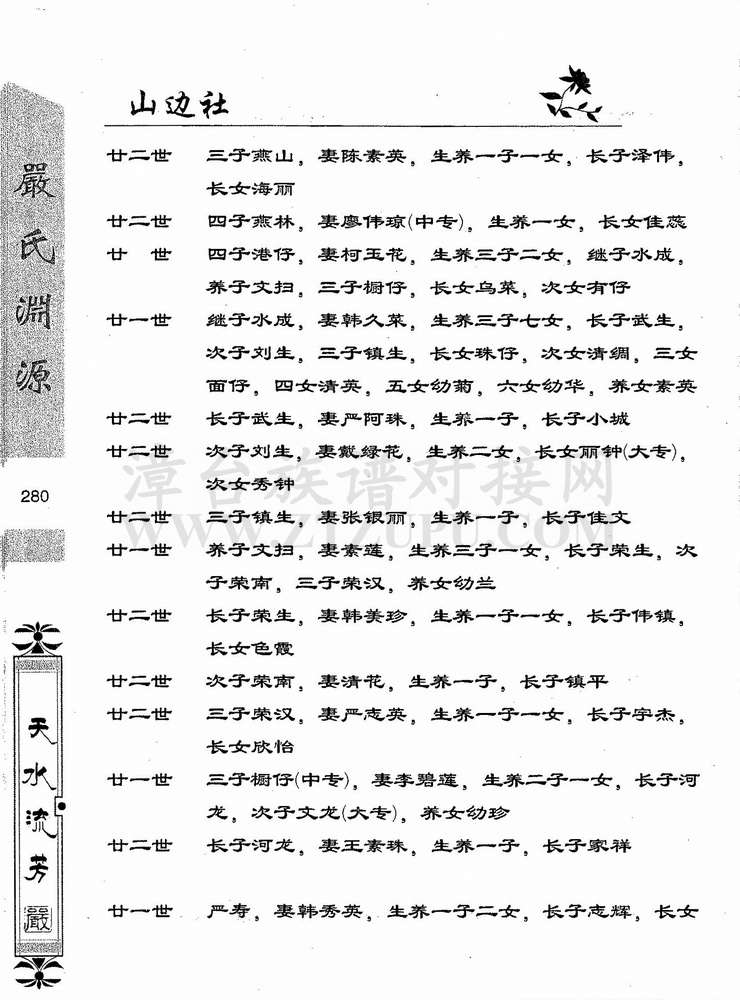 山边社
廿二世 三子燕山，妻陈素英，生养一子一女，长子泽伟，
长女海丽
廿二世 四子燕林，妻廖伟琼(中专)，生养一女，长女佳蕊
廿 世 四子港仔，妻柯玉花，生养三子二女，继子水成，
养子文扫，三子橱仔，长女乌菜，次女有仔
廿一世 继子水成，妻韩久菜，生养三子七女，长子武生，
次子刘生，三子镇生，长女珠仔，次女清绸，三女
面仔，四女清英，五女幼菊，六女幼华，养女素英
廿二世 长子武生，妻严阿珠，生养一子，长子小城
廿二世 次子刘生，妻戴绿花，生养二女，长女丽钟(大专)，
次女秀钟
廿二世 三子镇生，妻张银丽，生养一子，长子佳文
廿一世 养子文扫，妻素莲，生养三子一女，长子荣生，次
子荣南，三子荣汉，养女幼兰
廿二世 长子荣生，妻韩美珍，生养一子一女，长子伟镇，
长女色霞
廿二世 次子荣南，妻清花，生养一子，长子镇平
廿二世 三子荣汉，妻严志英，生养一子一女，长子宇杰，
长女欣怡
廿一世 三子橱仔(中专)，妻李碧莲，生养二子一女，长子河
龙，次子文龙(大专)，养女幼珍
廿二世 长子河龙，妻王素珠，生养一子，长子家祥
廿一世 严寿，妻韩秀英，生养一子二女，长子志辉，长女
嚴氏淵源
280
天水流芳
嚴
漳台族谱对接网
WWW.ZTZUPU.COM